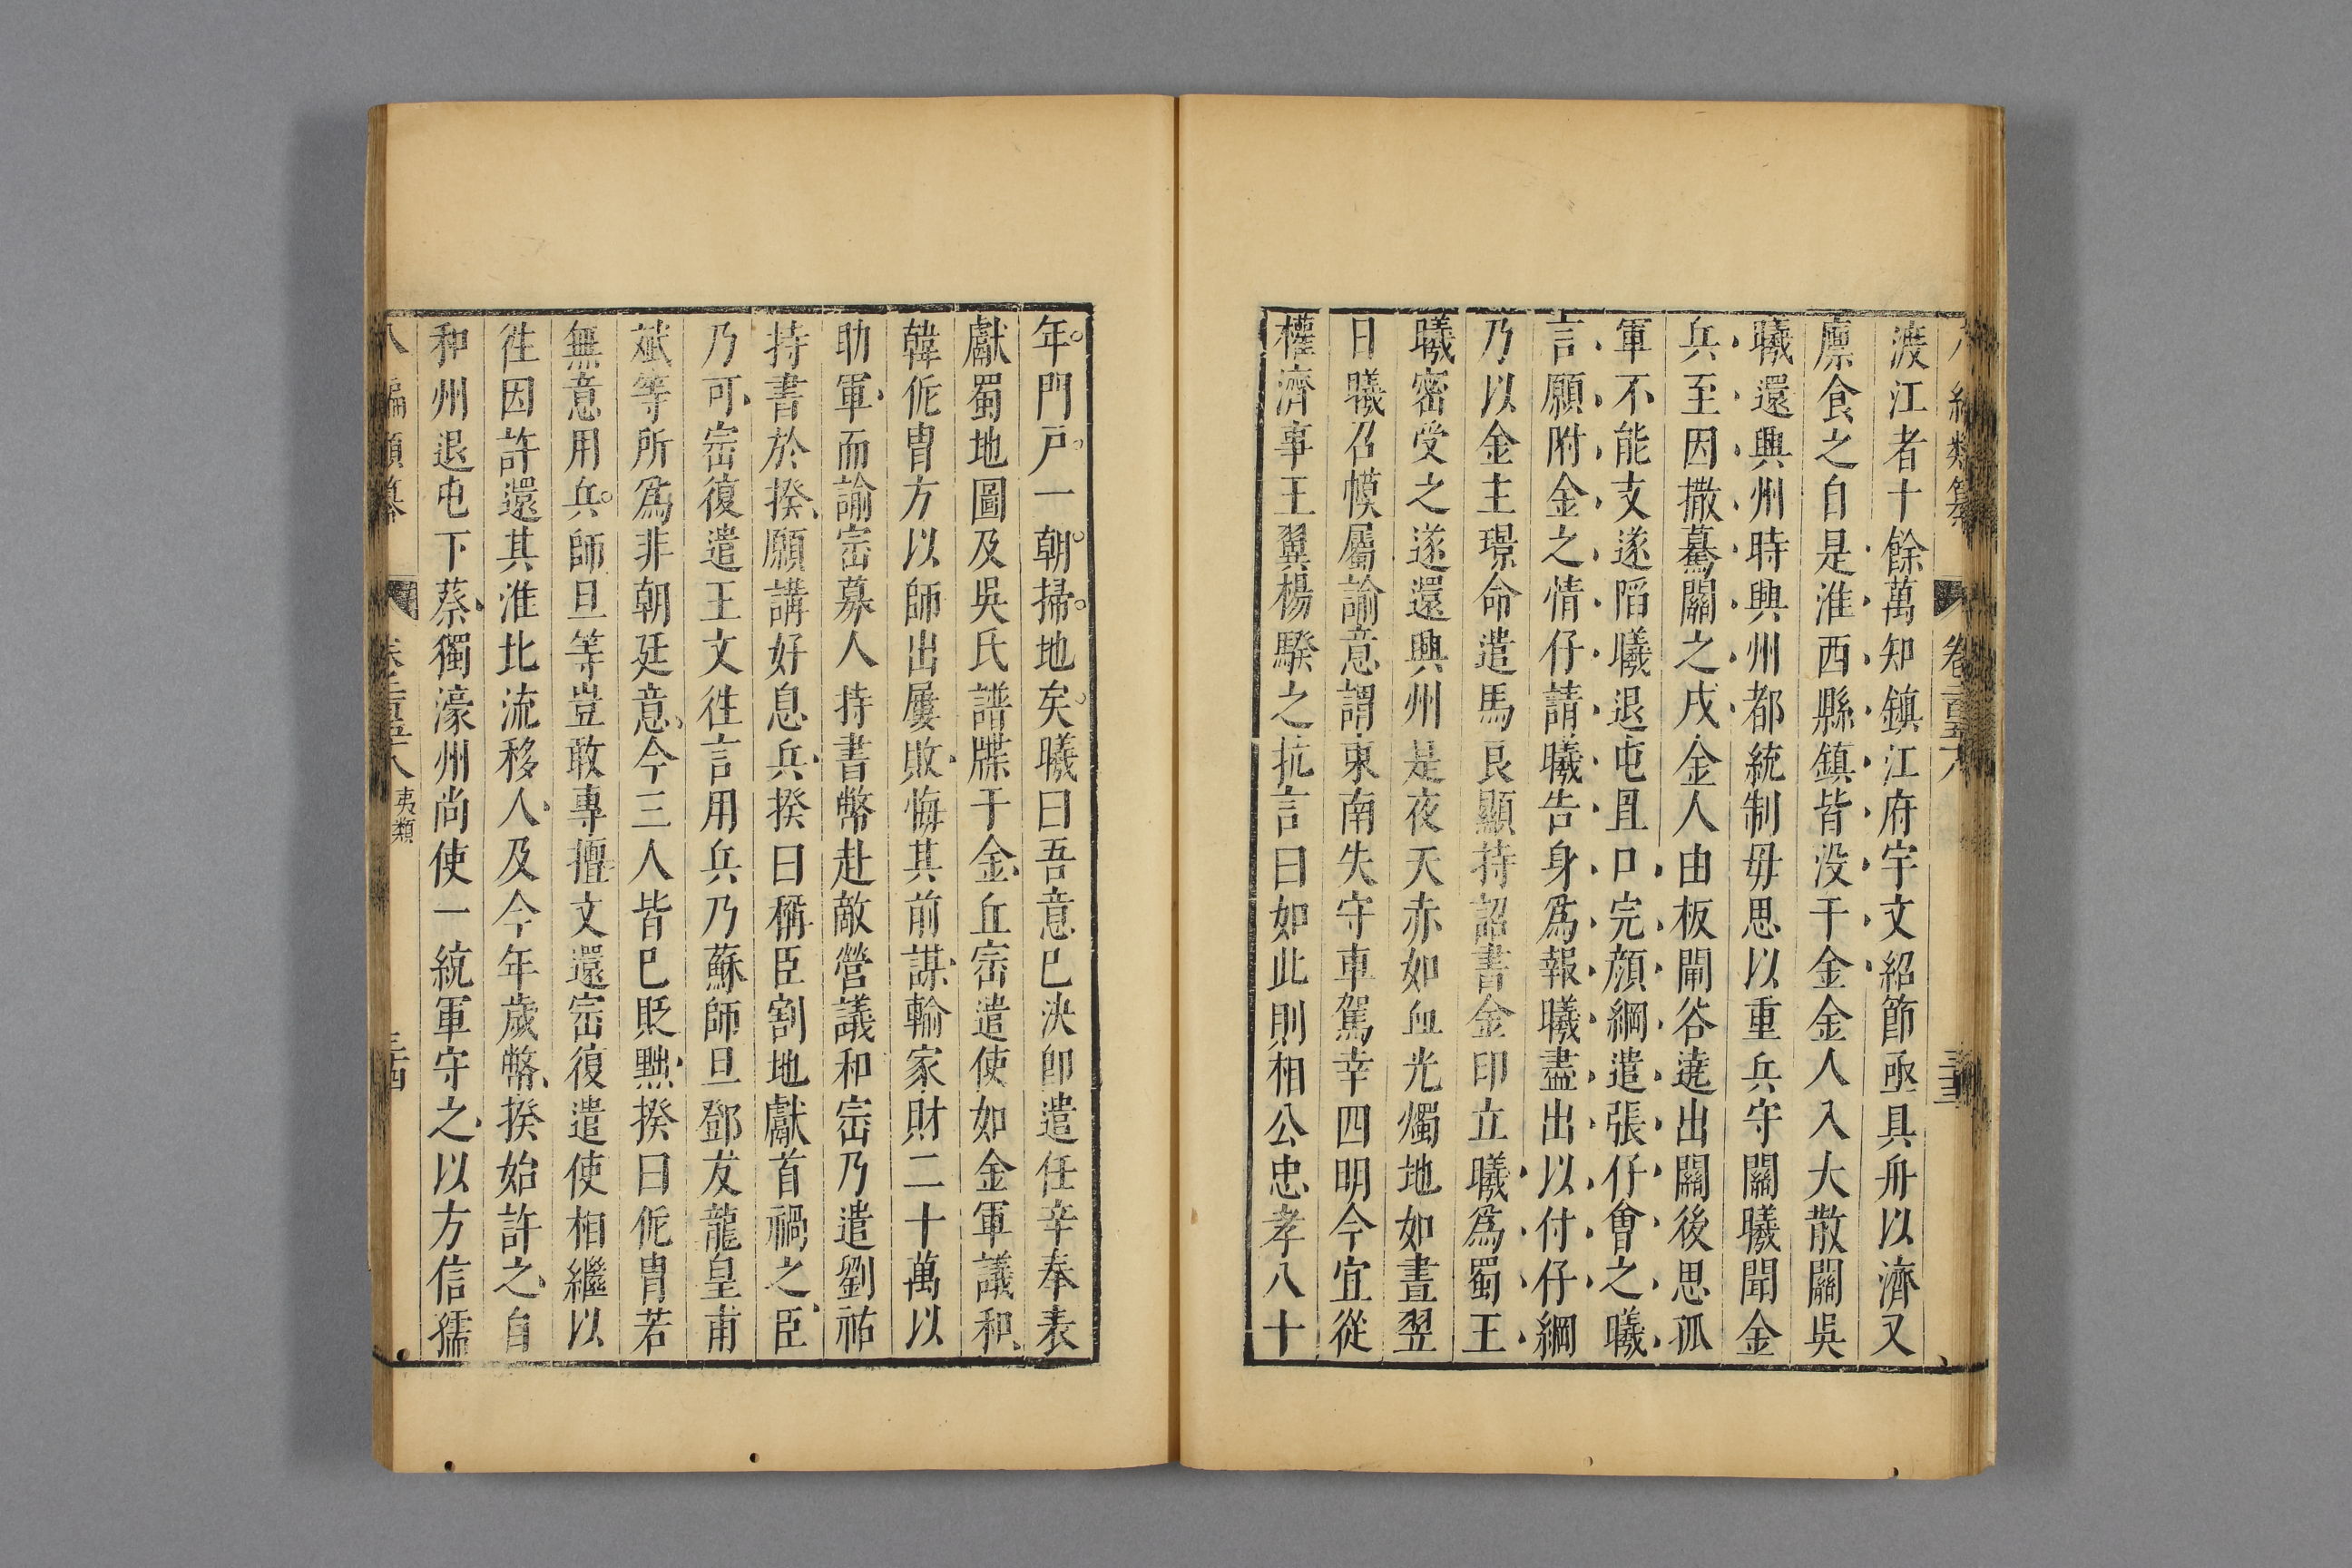 八編類纂 卷二百五十八 三十三
渡江者十餘萬知鎮江府宇文紹節亟具舟以濟又
廪食之自是淮西縣鎮皆没于金金人入大散關吳
曦還興州時興州都統制毋思以重兵守關曦聞金
兵至因撒驀關之戍金人由板閘谷遶出關後思孤
軍不能支遂䧟曦退屯罝口完顔綱遣張仔會之曦
言願附金之情仔請曦告身爲報曦盡出以付仔綱
乃以金主璟命遣馬良顯持詔書金印立曦爲蜀王
曦密受之遂還興州是夜天赤如血光燭地如晝翌
日曦召幙屬諭意謂東南失守車駕幸四明今宜從
權濟事王翼楊騤之抗言曰如此則相公忠孝八十
年門戸一朝掃地矣曦曰吾意已決卽遣任辛奉表
獻蜀地圖及吳氏譜牒于金丘崈遣使如金軍議和
韓侂胄方以師出屢敗悔其前謀輸家財二十萬以
助軍而諭崈募人持書幣赴敵營議和崈乃遣劉祐
持書於揆願講好息兵揆曰稱臣割地獻首禍之臣
乃可崈復遣王文徃言用兵乃蘇師旦鄧友龍皇甫
斌等所爲非朝廷意今三人皆已貶黜揆曰侂胄若
無意用兵師旦等豈敢專擅文還崈復遣使相繼以
徃因許還其淮北流移人及今年歲幣揆始許之自
和州退屯下蔡獨濠州尚使一統軍守之以方信孺
八編類纂 卷二百五十八 夷類 三十四